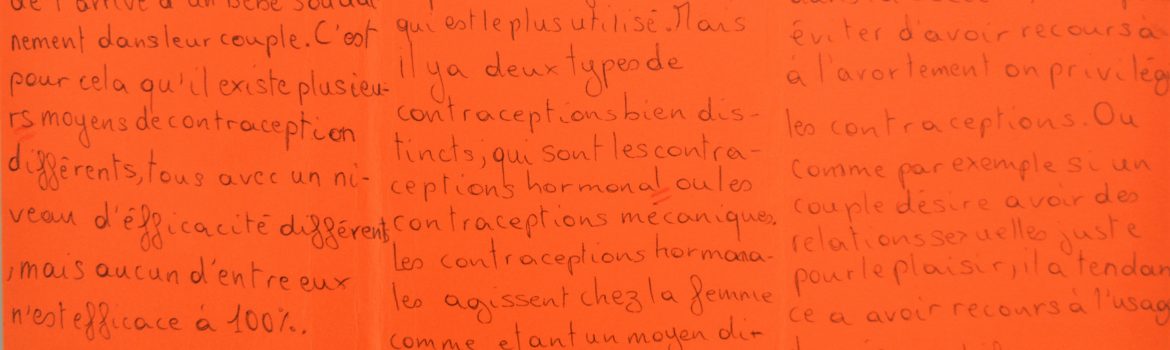 de l'arrivé d'un bébé soudai
nement dans leur couple. C'est
pour cela qu'il existe plusieu-
rs moyens de contraception
différents, tous avec un ni-
veau d'éfficacité différent
, mais aucun d'entre eux
n'est efficace à 100%.
qui est le plus utilisé. Mais
il y a deux types de
contraceptions bien dis-
tincts, qui sont les contra-
ceptions hormonal ou les
contraceptions mécaniques.
Les contraceptions hormona-
les agissent chez la femme
comme etant un moyen di-
éviter d'avoir recours à
à l'avortement on privilég
les contraceptions. Ou
comme par exemple si un
couple désire avoir des
relations sexuelles juste
pour le plaisir, il a tendan
ce a avoir recours à l'usag